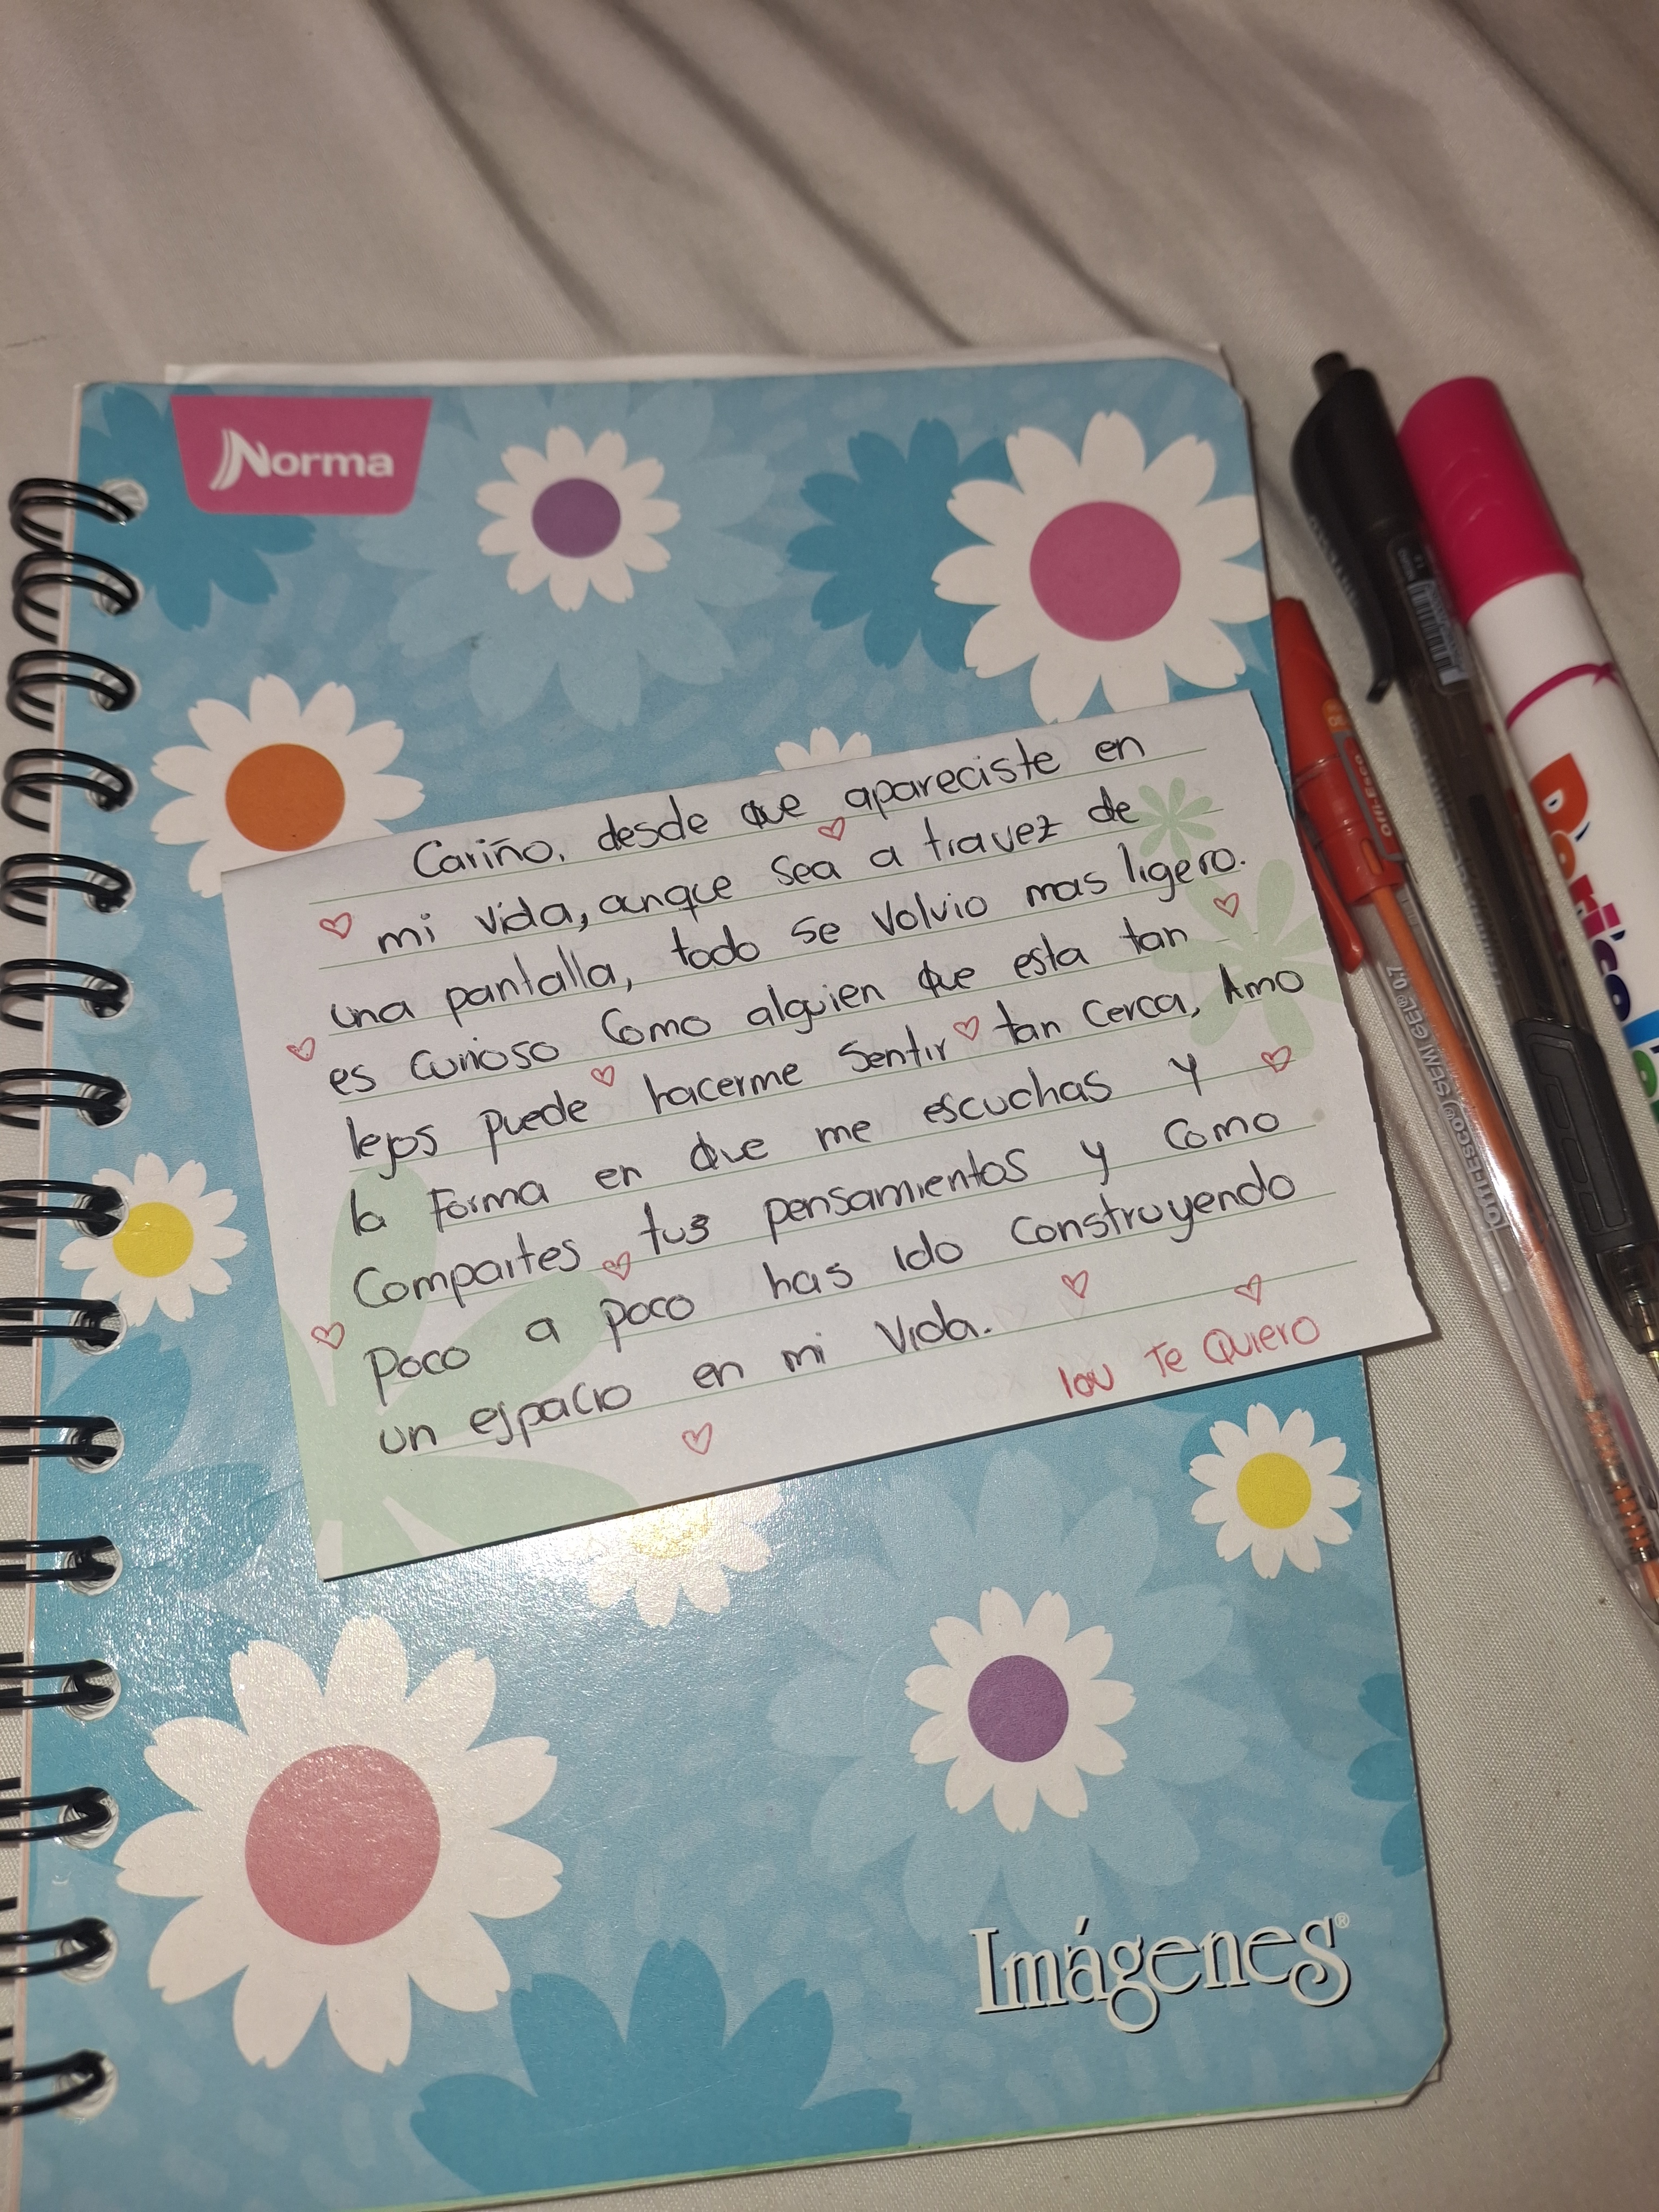 Norma
Cariño, desde que apareciste en
mi vida, aunque sea a travez de
una pantalla, todo se volvio mas ligero.
es curioso como alguien que esta tan
lejos puede hacerme sentir tan cerca, Amo
la Forma en que me escuchas y
Compartes tus pensamientos y como
poco a poco has ido construyendo
un espacio en mi vida.
Te Quiero
Imágenes®
Offi-Esco
OFFIESCO® SEMI GEL® 0.7
Doricolor